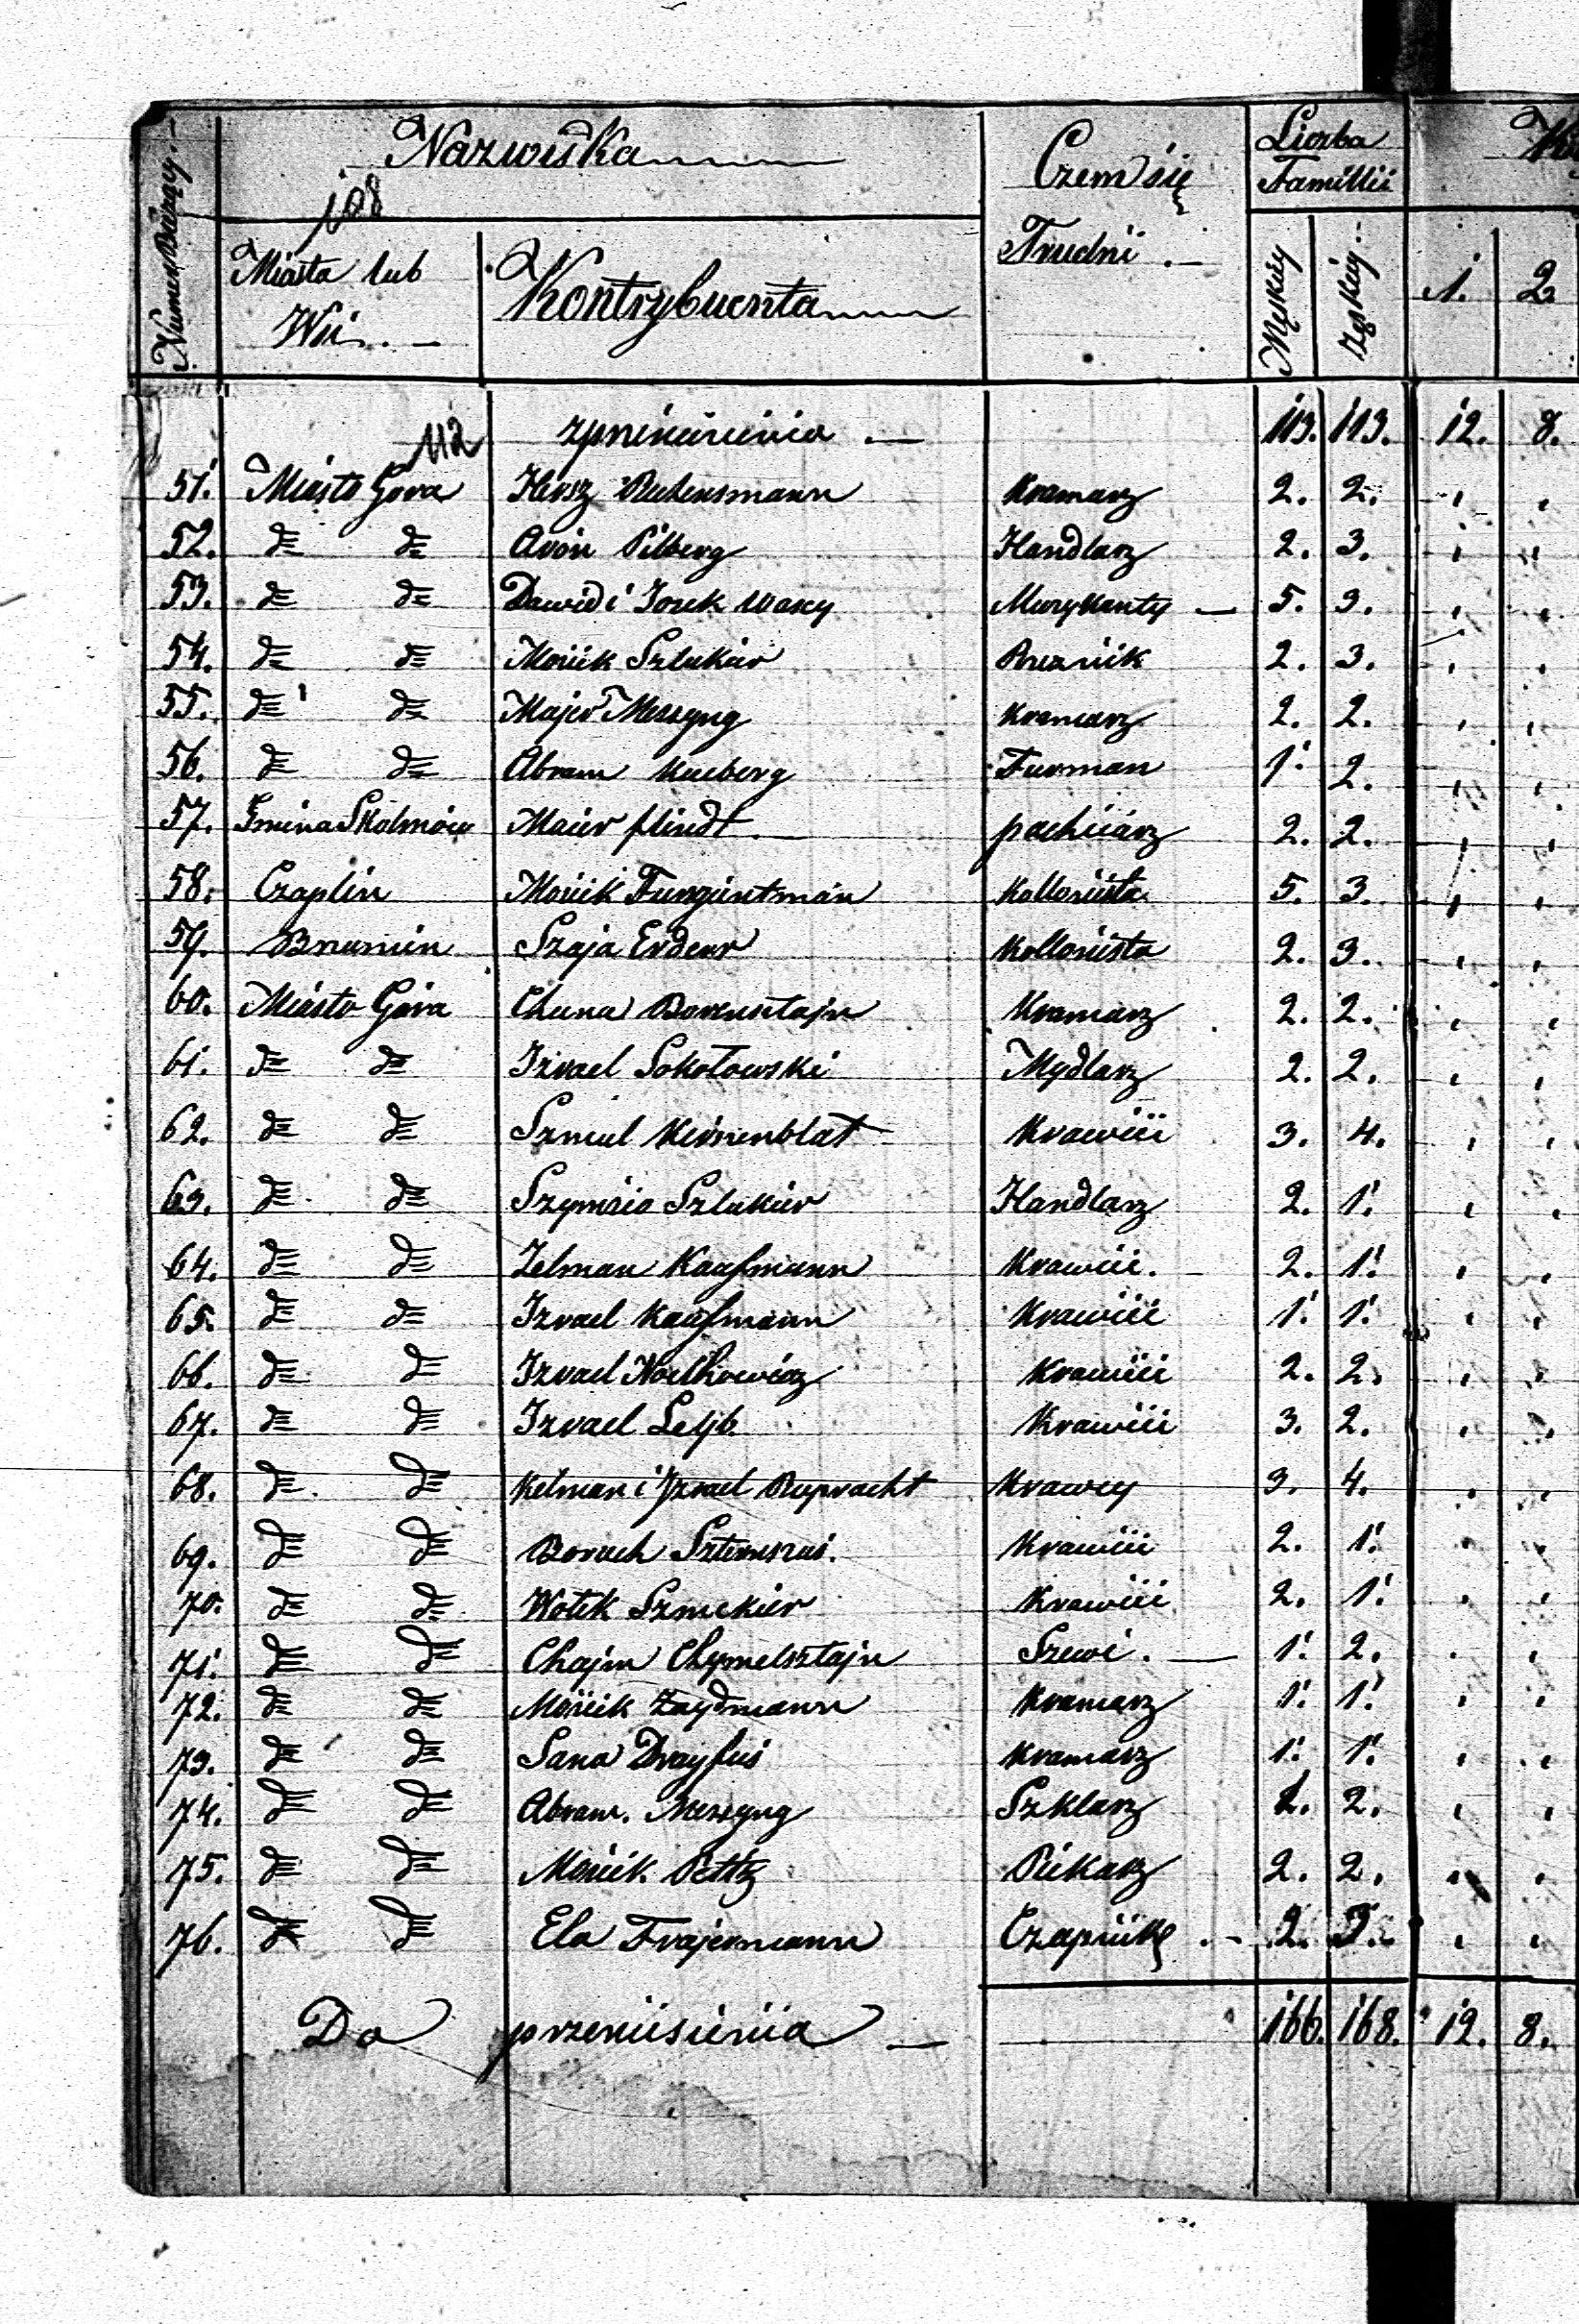 Numer Bieżący.
Nazwiska
Czem się Trudni
Liczba Familii
108
Miasta lub Wsi
Kontrybuenta
Męskiey
Żeńskiey
1. 2
112 z przeniesienia 113. 113. 12. 8.
51. Miasto Góra Hersz Rubensmann Kramarz 2. 2.
52. dº dº Aron Pilberg Handlarz 2. 3.
53. dº dº Dawid i Josek Muzykanty 5. 3.
54. dº dº Mosiek Szlukier 2. 3.
55. dº dº Majer Messyng Kramarz 2. 2.
56. dº dº Abram Kueberg Furman 1. 2.
57. Gmina Skolmów Maier flindt pachciarz 2. 2.
58. Czaplin Mosiek Funzüntman Kollonista 5. 3.
59. Brumin Szaja Erdenr Kollonista 2. 3.
60. Miasto Góra Chuna Borensztajn Kramarz 2. 2.
61. dº dº Izrael Sokołowski Mydlarz 2. 2.
62. dº dº Szmul Kersenblat Krawiec 3. 4.
63. dº dº Szymsio Szlukier Handlarz 2. 1.
64. dº dº Zelman Kaufmann Krawiec 2. 1.
65. dº dº Izrael Kaufmann Krawiec 1. 1.
66. dº dº Izrael Krawiec 2. 2.
67. dº dº Izrael Lejb Krawiec 3. 2.
68. dº dº Kelman i Izrael Rupracht Krawcy 3. 4.
69. dº dº Borach Krawiec 2. 1.
70. dº dº Wolek Szmekier Krawiec 2. 1.
71. dº dº Chajm Chymelsztajn Szewc 1. 2.
72. dº dº Mosiek Zaydmann Kramarz 1. 1.
73. dº dº Sana Drayfus Kramarz 1. 1.
74. dº dº Abram Messyng Szklarz 2.
75. dº dº Mosiek Piekarz 2. 2.
76. dº dº Ela Frajermann Czapnik 2. 3.
Do przeniesienia 166. 168. 12. 8.